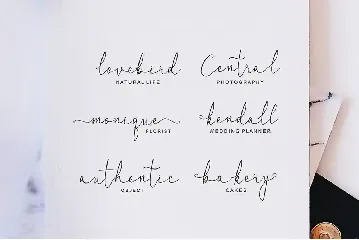 lovebird
NATURAL LIFE
Central
PHOTOGRAPHY
monique
FLORIST
kendall
WEDDING PLANNER
authentic
OBJECT
bakery
CAKES